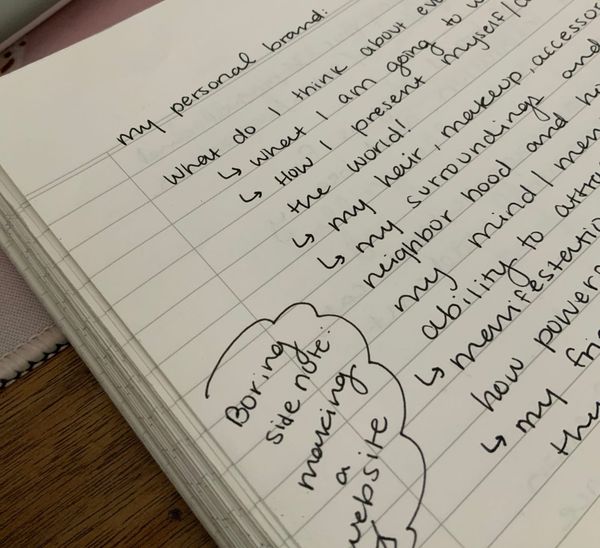 my personal brand:
What do I think about
↳ What I am going to
↳ How I present myself/
the world!
↳ my hair, makeup,
↳ my surroundings and
neighbor hood and
my mind/
ability to
↳ manifestation
how
↳ my
Boring
side note:
making
a
website